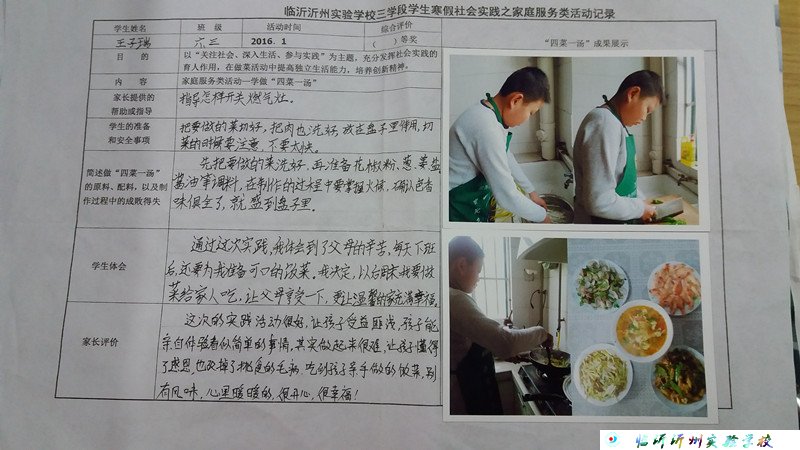 临沂沂州实验学校三学段学生寒假社会实践之家庭服务类活动记录
学生姓名 班 级 活动时间 综合评价 “四菜一汤”成果展示
王子瑞 六.三 2016.1 ( )等奖
目 的 以“关注社会、深入生活、参与实践”为主题，充分发挥社会实践的
育人作用，在做菜活动中提高独立生活能力，培养创新精神。
内 容 家庭服务类活动—学做“四菜一汤”
家长提供的
帮助或指导
指导怎样开关燃气灶。
学生的准备
和安全事项
把要做的菜切好，把肉也洗好，放在盘子里待用，切
菜的时候要注意，不要太快。
简述做“四菜一汤”
的原料、配料，以及制
作过程中的成败得失
先把要做的菜洗好，再准备花椒粉、葱、姜、盐
酱油等调料，在制作的过程中要掌握火候，确认色香
味俱全了，就盛到盘子里。
学生体会
通过这次实践，我体会到了父母的辛苦，每天下班
后，还要为我准备可口的饭菜。我决定，以后周末我要做
菜给家人吃，让父母享受一下，更让温馨的家充满幸福。
家长评价
这次的实践活动很好，让孩子受益匪浅，孩子能
亲自体验看似简单的事情，其实做起来很难，让孩子懂得
了感恩，也改掉了挑食的毛病，吃到孩子亲手做的饭菜，别
有风味，心里暖暖的，很开心，很幸福！
临沂沂州实验学校